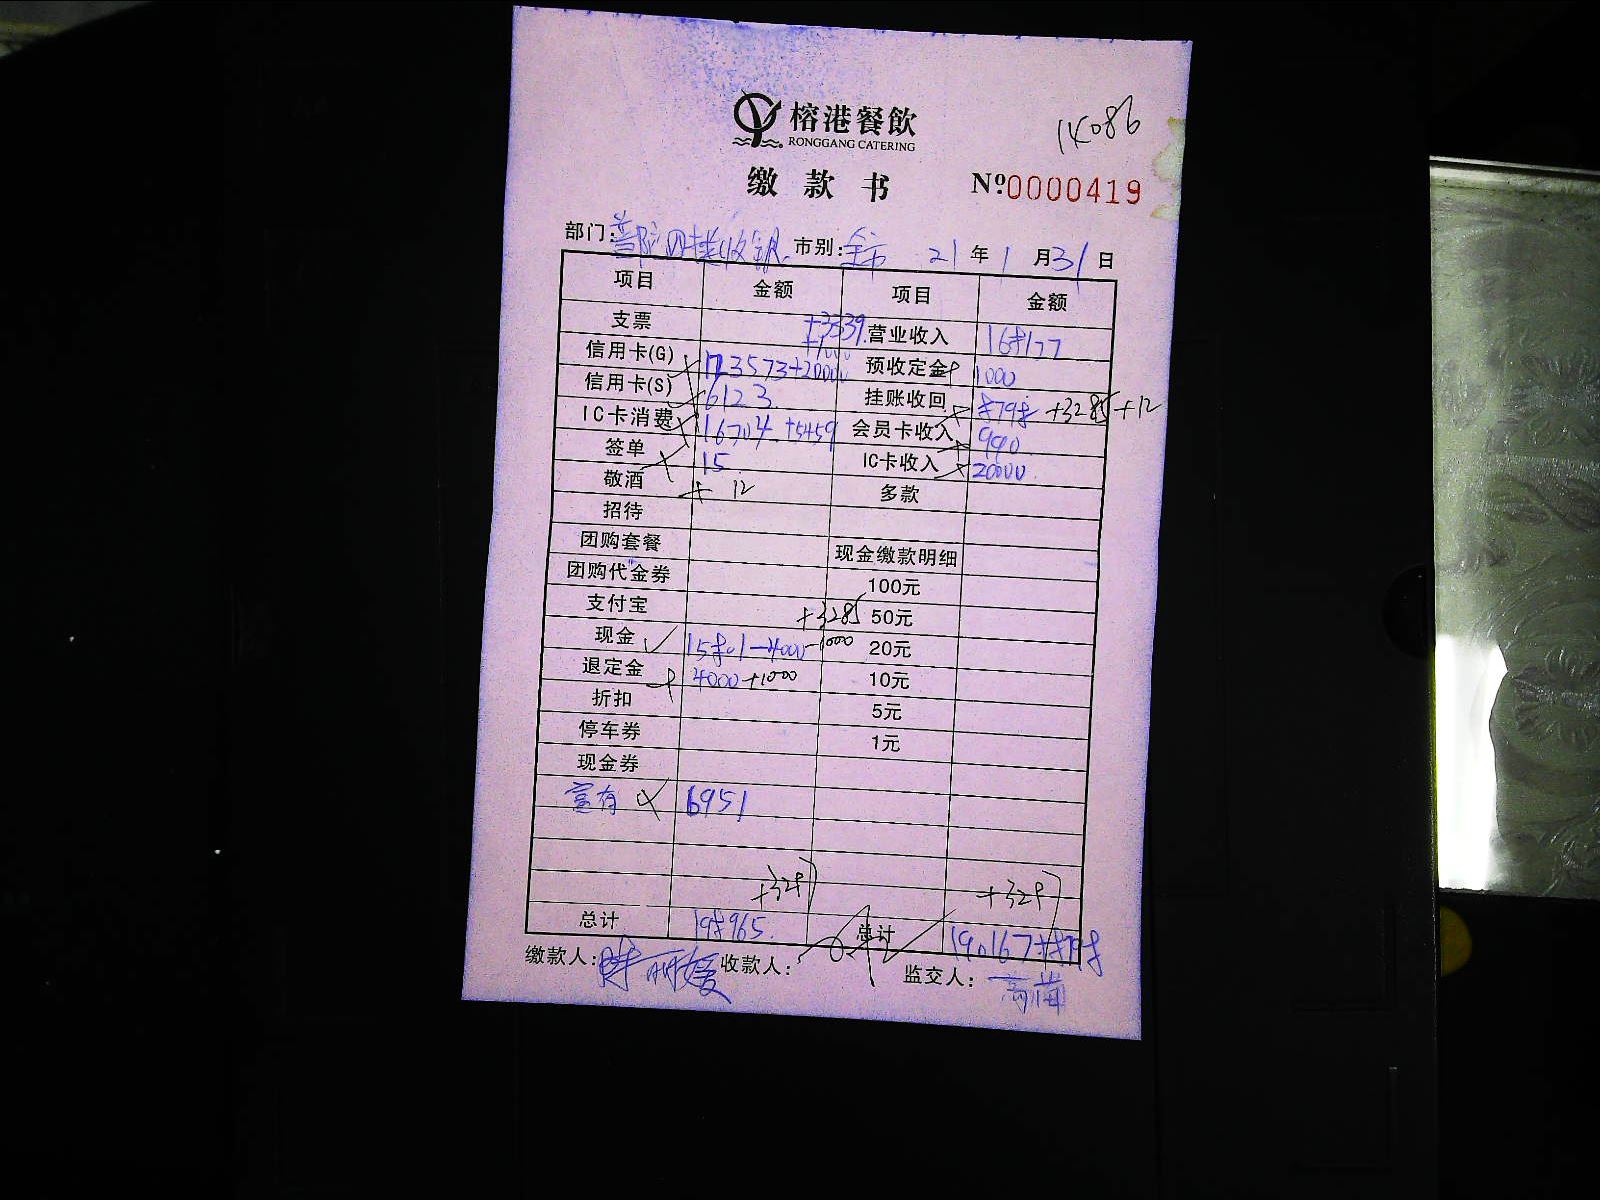 榕港餐飲
RONGGANG CATERING
14086
缴款书
Nº0000419
部门: 市别: 21年1月31日
项目 金额 项目 金额
支票 +3339 营业收入 168177
信用卡(G) 123573+20000 预收定金 1000
信用卡(S) 6123 挂账收回 8798 +3285+12
IC卡消费 16704 +5459 会员卡收入 990
签单 15 IC卡收入 20000
敬酒 12 多款
招待
团购套餐 现金缴款明细
团购代金券 100元
支付宝 +3285 50元
现金 15801-4000-1000 20元
退定金 4000+1000 10元
折扣 5元
停车券 1元
现金券
富有 6951
总计 198965 总计 190167+8798
缴款人: 收款人: 监交人: